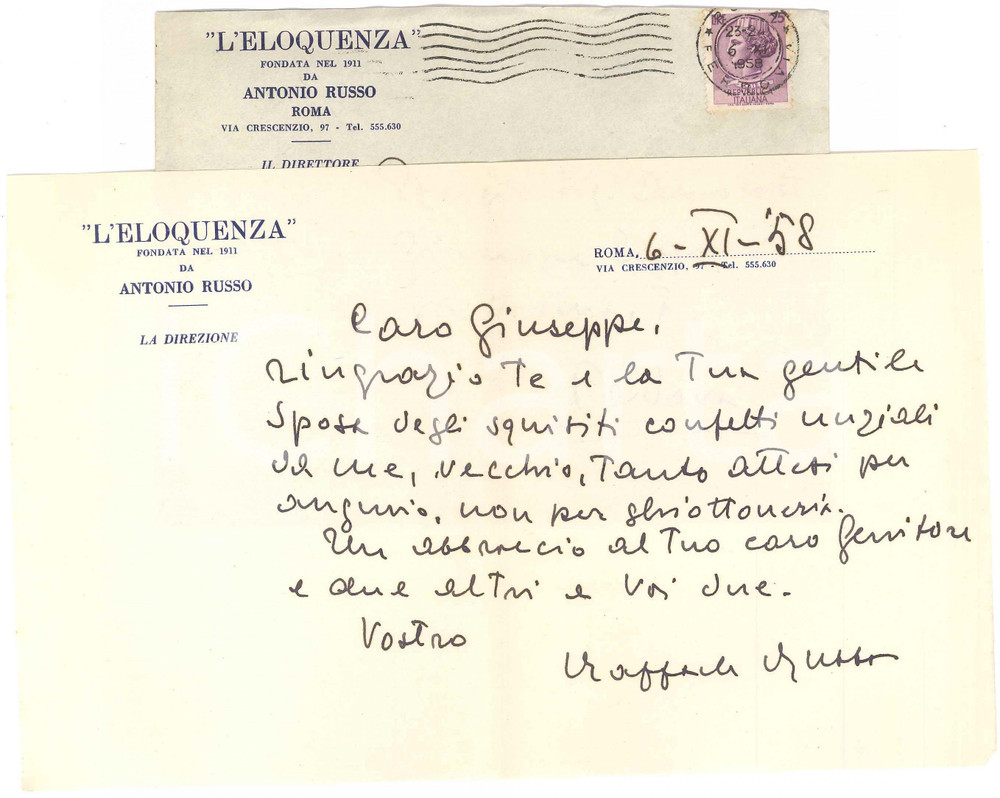 "L'ELOQUENZA"
FONDATA NEL 1911
DA
ANTONIO RUSSO
ROMA
VIA CRESCENZIO, 97 - Tel. 555.630
IL DIRETTORE
23-24
6 XI
1958
ROMA
FERROVIA
REPUBBLICA
ITALIANA
"L'ELOQUENZA"
FONDATA NEL 1911
DA
ANTONIO RUSSO
LA DIREZIONE
ROMA, 6-XI-'58
VIA CRESCENZIO, 97 - Tel. 555.630
Caro Giuseppe,
ringrazio Te e la Tua gentile
Sposa degli squisiti confetti nuziali
da me, vecchio, tanto attesi per
augurio, non per ghiottoneria.
Un abbraccio al Tuo caro Genitore
e due altri a Voi due.
Vostro
Raffaele Russo